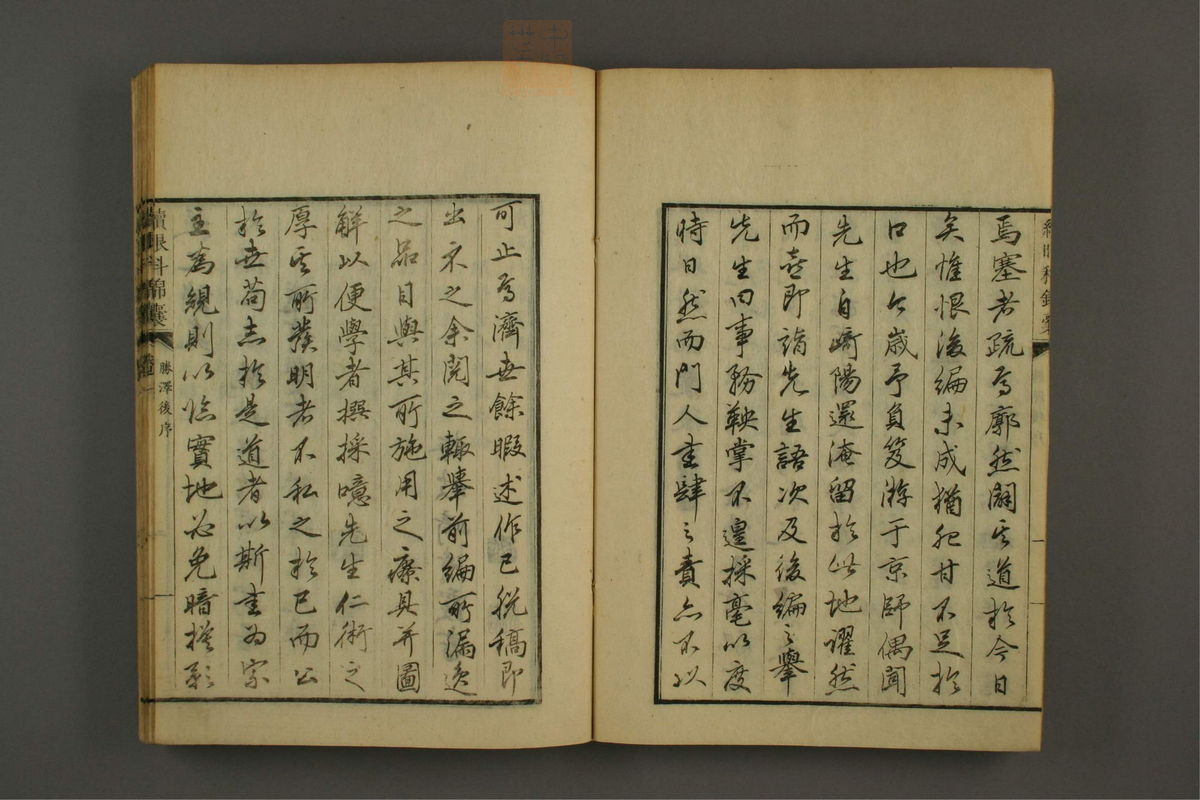 續眼科錦囊
焉塞者疏焉廓然闢其道於今日
矣惟恨後編未成猶肥甘不足於
口也今歳予負笈游于京師偶聞
先生自﨑陽還淹留於此地躍然
而喜即謁先生語次及後編之擧
先生曰事務鞅掌不遑採毫以度
時日然而門人書肆之責亦不以
可止焉濟世餘暇述作已脱稿即
出示之余閲之輙舉前編所漏逸
之品目與其所施用之療具并圖
解以便學者撰採噫先生仁術之
厚其所發明者不私之於己而公
於世苟志於是道者以斯書為宗
主為規則以臨實地必免暗摸影
續眼科錦囊
勝澤後序